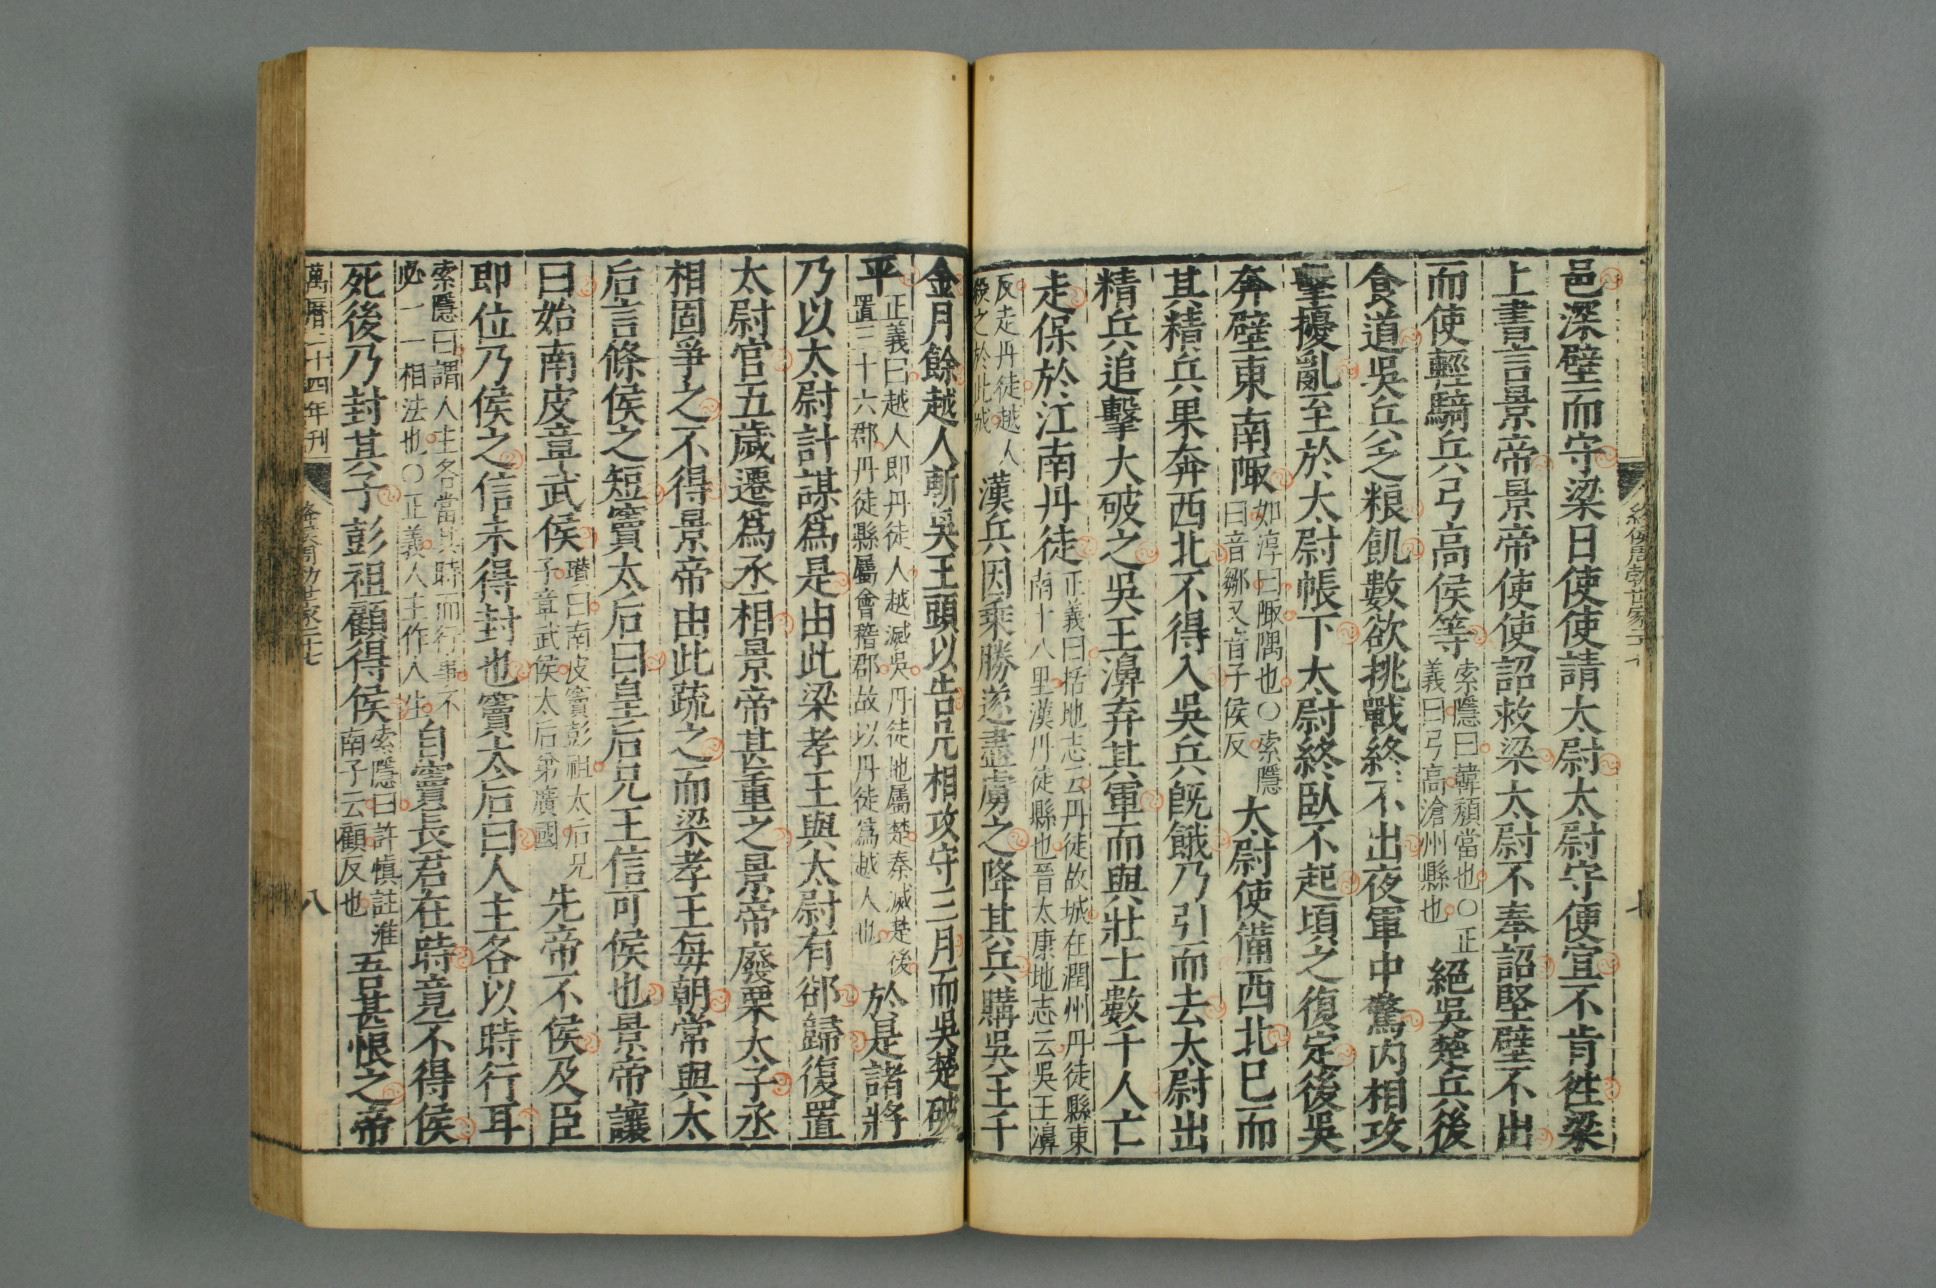 絳侯周勃世家二十七
邑深壁而守梁日使使請太尉太尉守便宜不肯徃梁
上書言景帝景帝使使詔救梁太尉不奉詔堅壁不出
而使輕騎兵弓高侯等索隱曰韓頹當也○正義曰弓高滄州縣也絕吳楚兵後
食道吳兵乏粮飢數欲挑戰終不出夜軍中驚內相攻
擊擾亂至於太尉帳下太尉終臥不起頃之復定後吳
奔壁東南陬如淳曰陬隅也○索隱曰音鄒又音子侯反太尉使備西北已而
其精兵果奔西北不得入吳兵旣餓乃引而去太尉出
精兵追擊大破之吳王濞弃其軍而與壯士數千人亡
走保於江南丹徒正義曰括地志云丹徒故城在潤州丹徒縣東南十八里漢丹徒縣也晉太康地志云吳王濞
反走丹徒越人殺之於此城漢兵因乘勝遂盡虜之降其兵購吳王千
金月餘越人斬吳王頭以告凡相攻守三月而吳楚破
平正義曰越人即丹徒人越滅吳丹徒地屬楚秦滅楚後置三十六郡丹徒縣屬會稽郡故以丹徒爲越人也於是諸將
乃以太尉計謀爲是由此梁孝王與太尉有郤歸復置
太尉官五歲遷爲丞相景帝甚重之景帝廢栗太子丞
相固爭之不得景帝由此疏之而梁孝王每朝常與太
后言條侯之短竇太后曰皇后兄王信可侯也景帝讓
曰始南皮章武侯瓚曰南皮竇彭祖太后兄子章武侯太后弟廣國先帝不侯及臣
即位乃侯之信未得封也竇太后曰人主各以時行耳
索隱曰謂人主各當其時而行事不必一一相法也○正義人主作人生自竇長君在時竟不得侯
死後乃封其子彭祖顧得侯索隱曰許慎註淮南子云顧反也吾甚恨之帝
萬曆二十四年刊
八